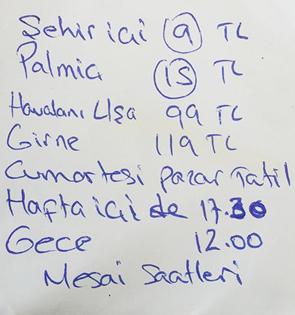 Şehir içi 9 TL
Palmia 15 TL
Havalanı Llşa 99 TL
Girne 119 TL
Cumartesi pazar Tatil
Hafta içi de 17.30
Gece 12.00
Mesai Saatleri